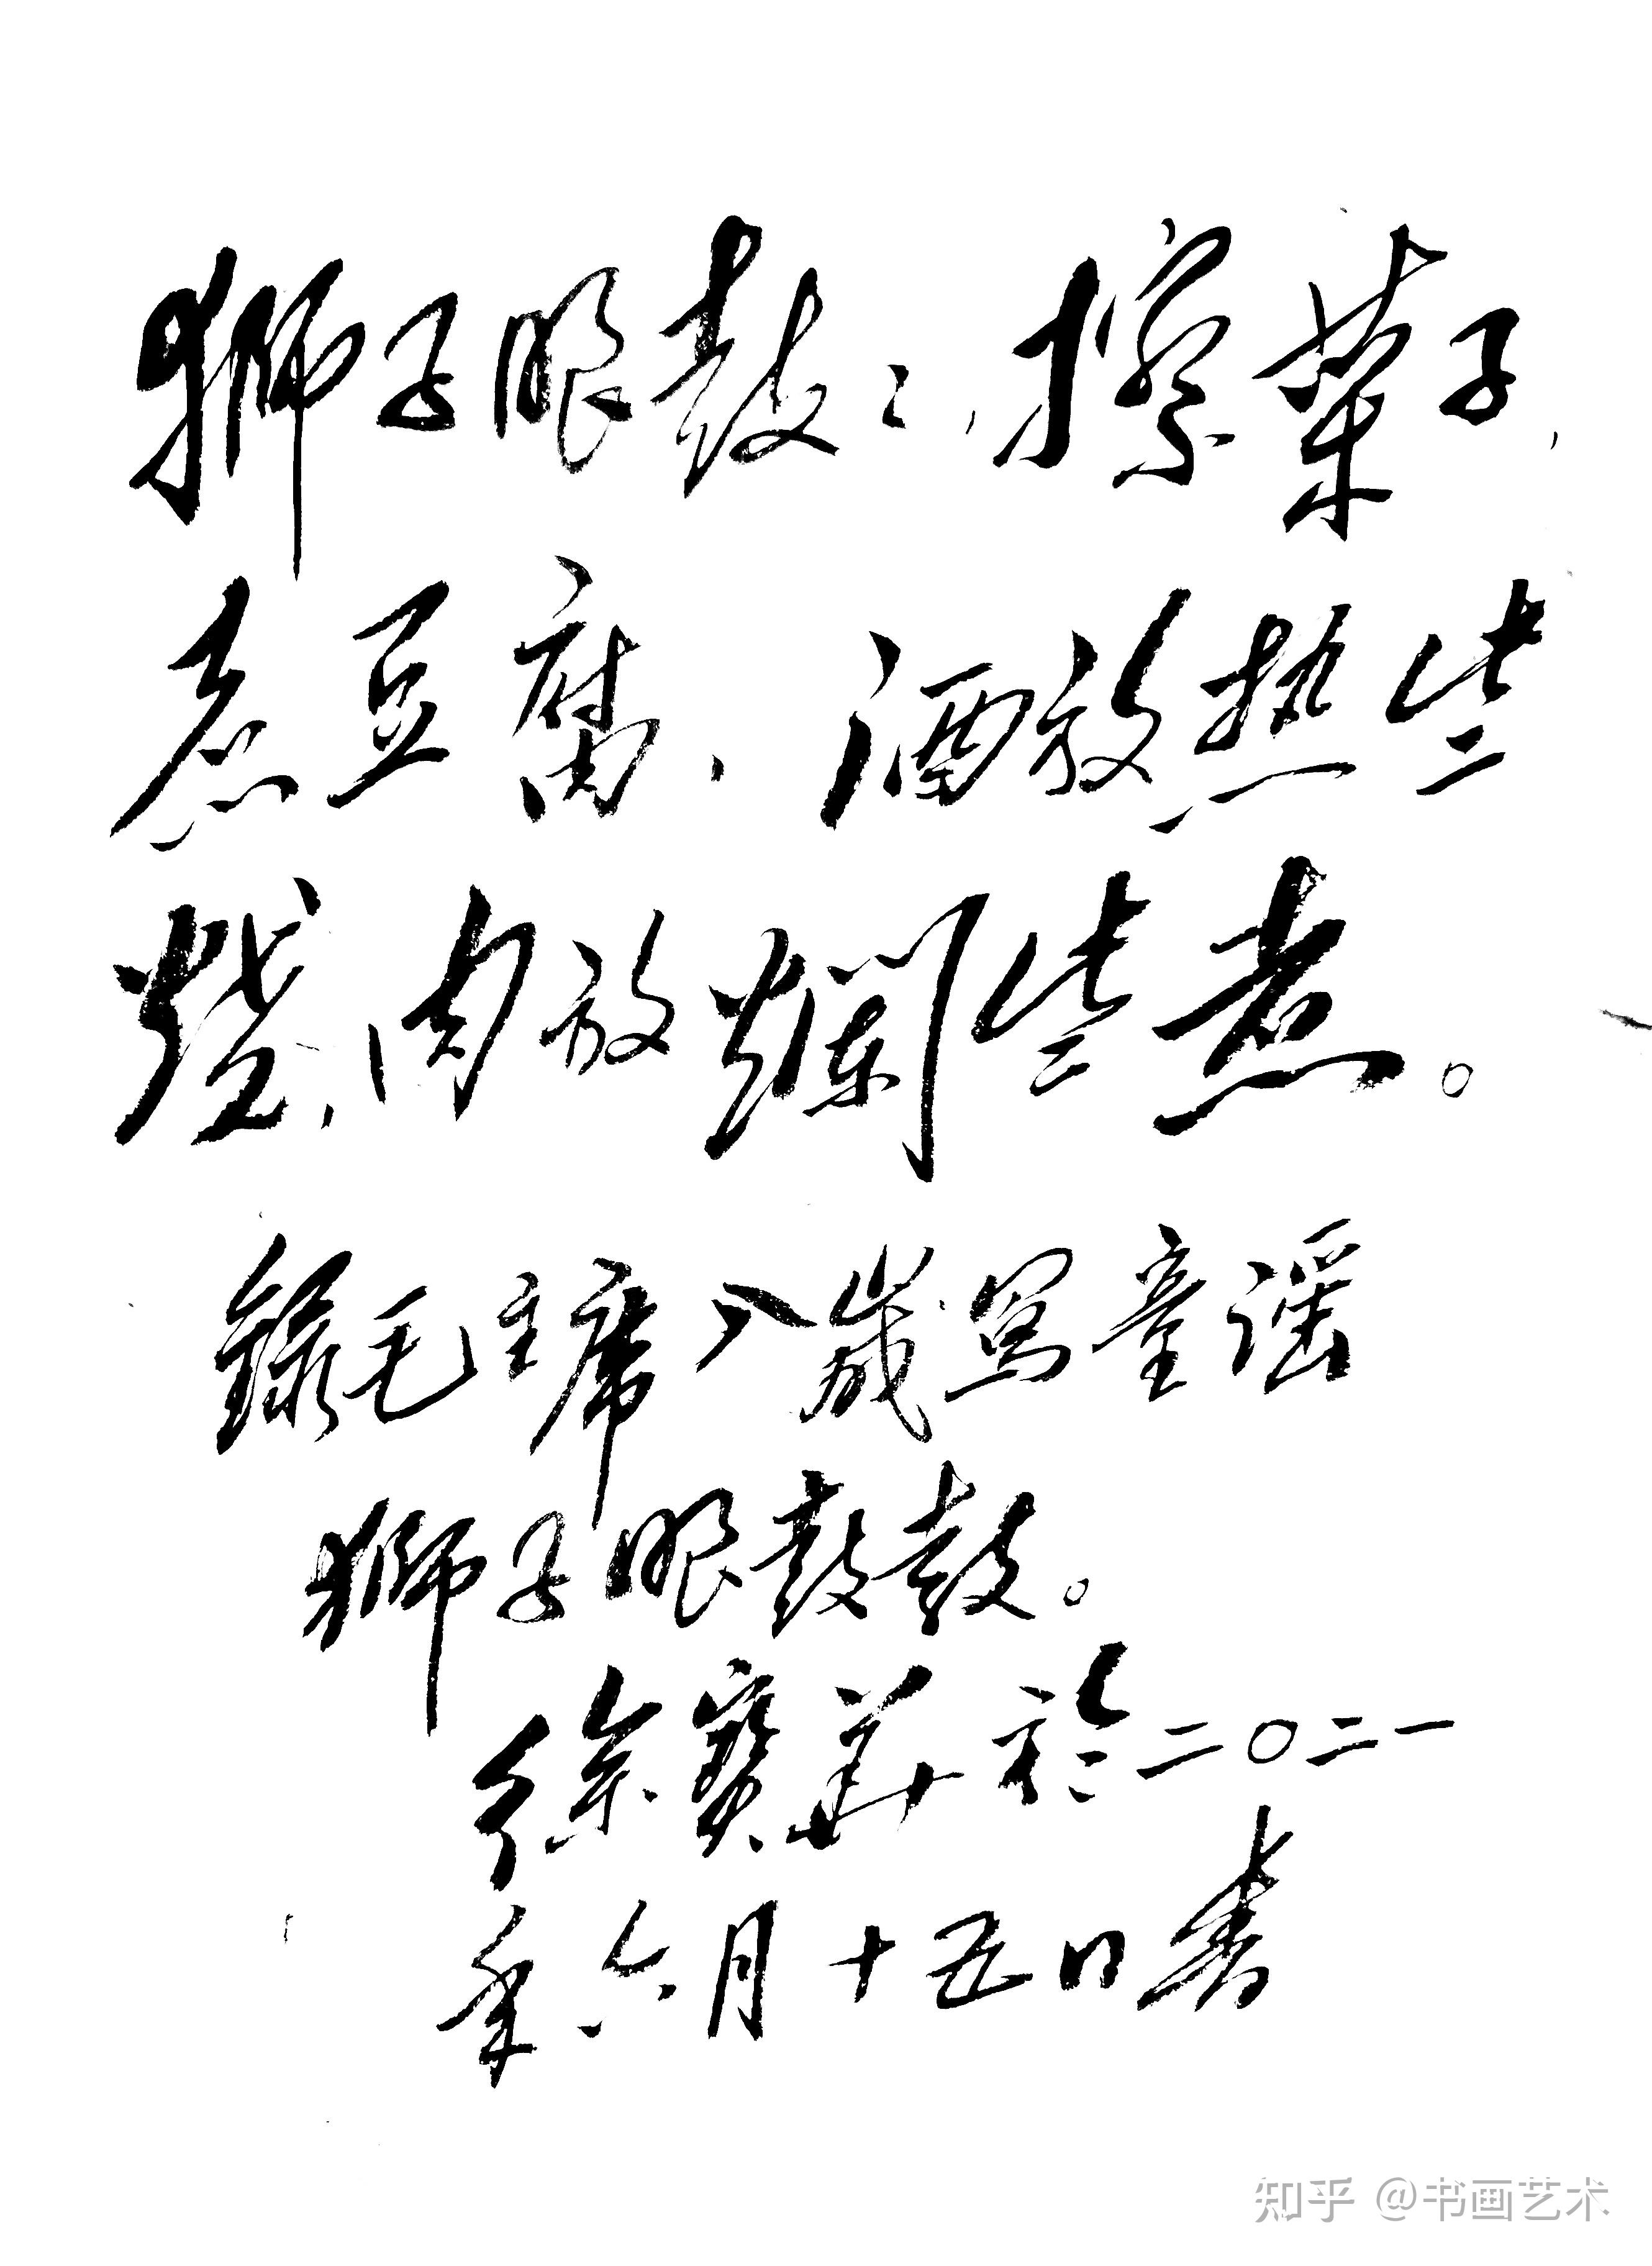 狮子眼鼓ミ，擦菜子，
煮豆腐，酒放热些
烧，肉放爛些煮。
録毛主席八歲写童谣
狮子眼鼓鼓。
徐寶華於二〇二一
年六月十五日书
知乎 @书画艺术